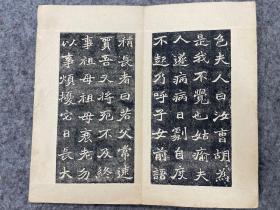 色夫人曰汝曹胡為
是我不覺也姑瘉夫
人遂病病日劇自度
不起乃呼子女前語
稍長者曰若父常遠
賈吾又將死不及終
事祖母祖母衰老勿
以事煩擾它日長大